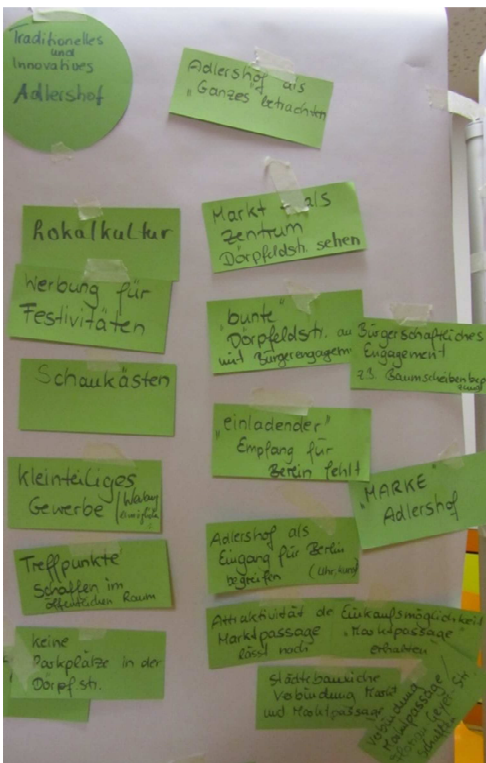 Traditionelles
und
Innovatives
Adlershof
Adlershof als
„Ganzes betrachten
Lokalkultur
Werbung für
Festivitäten
Schaukästen
kleinteiliges
Gewerbe
Treffpunkte
schaffen im
öffentlichen Raum
keine
Parkplätze in der
Dörpf.str.
Markt als
Zentrum
Dörpfeldstr. sehen
"bunte"
Dörpfeldstr. au
mit Bürgerengagem
Bürgerschaftliches
Engagement
z.B. Baumscheibenbep
„einladender"
Empfang für
Berlin fehlt
„MARKE"
Adlershof
Adlershof als
Eingang für Berlin
begreifen
Attraktivität de
Marktpassage
lässt nach
Einkaufsmöglichkeit
„Marktpassage"
erhalten
Städtebauliche
Verbindung Markt
und Marktpassage
Verbindung
Marktpassage/
schaffen